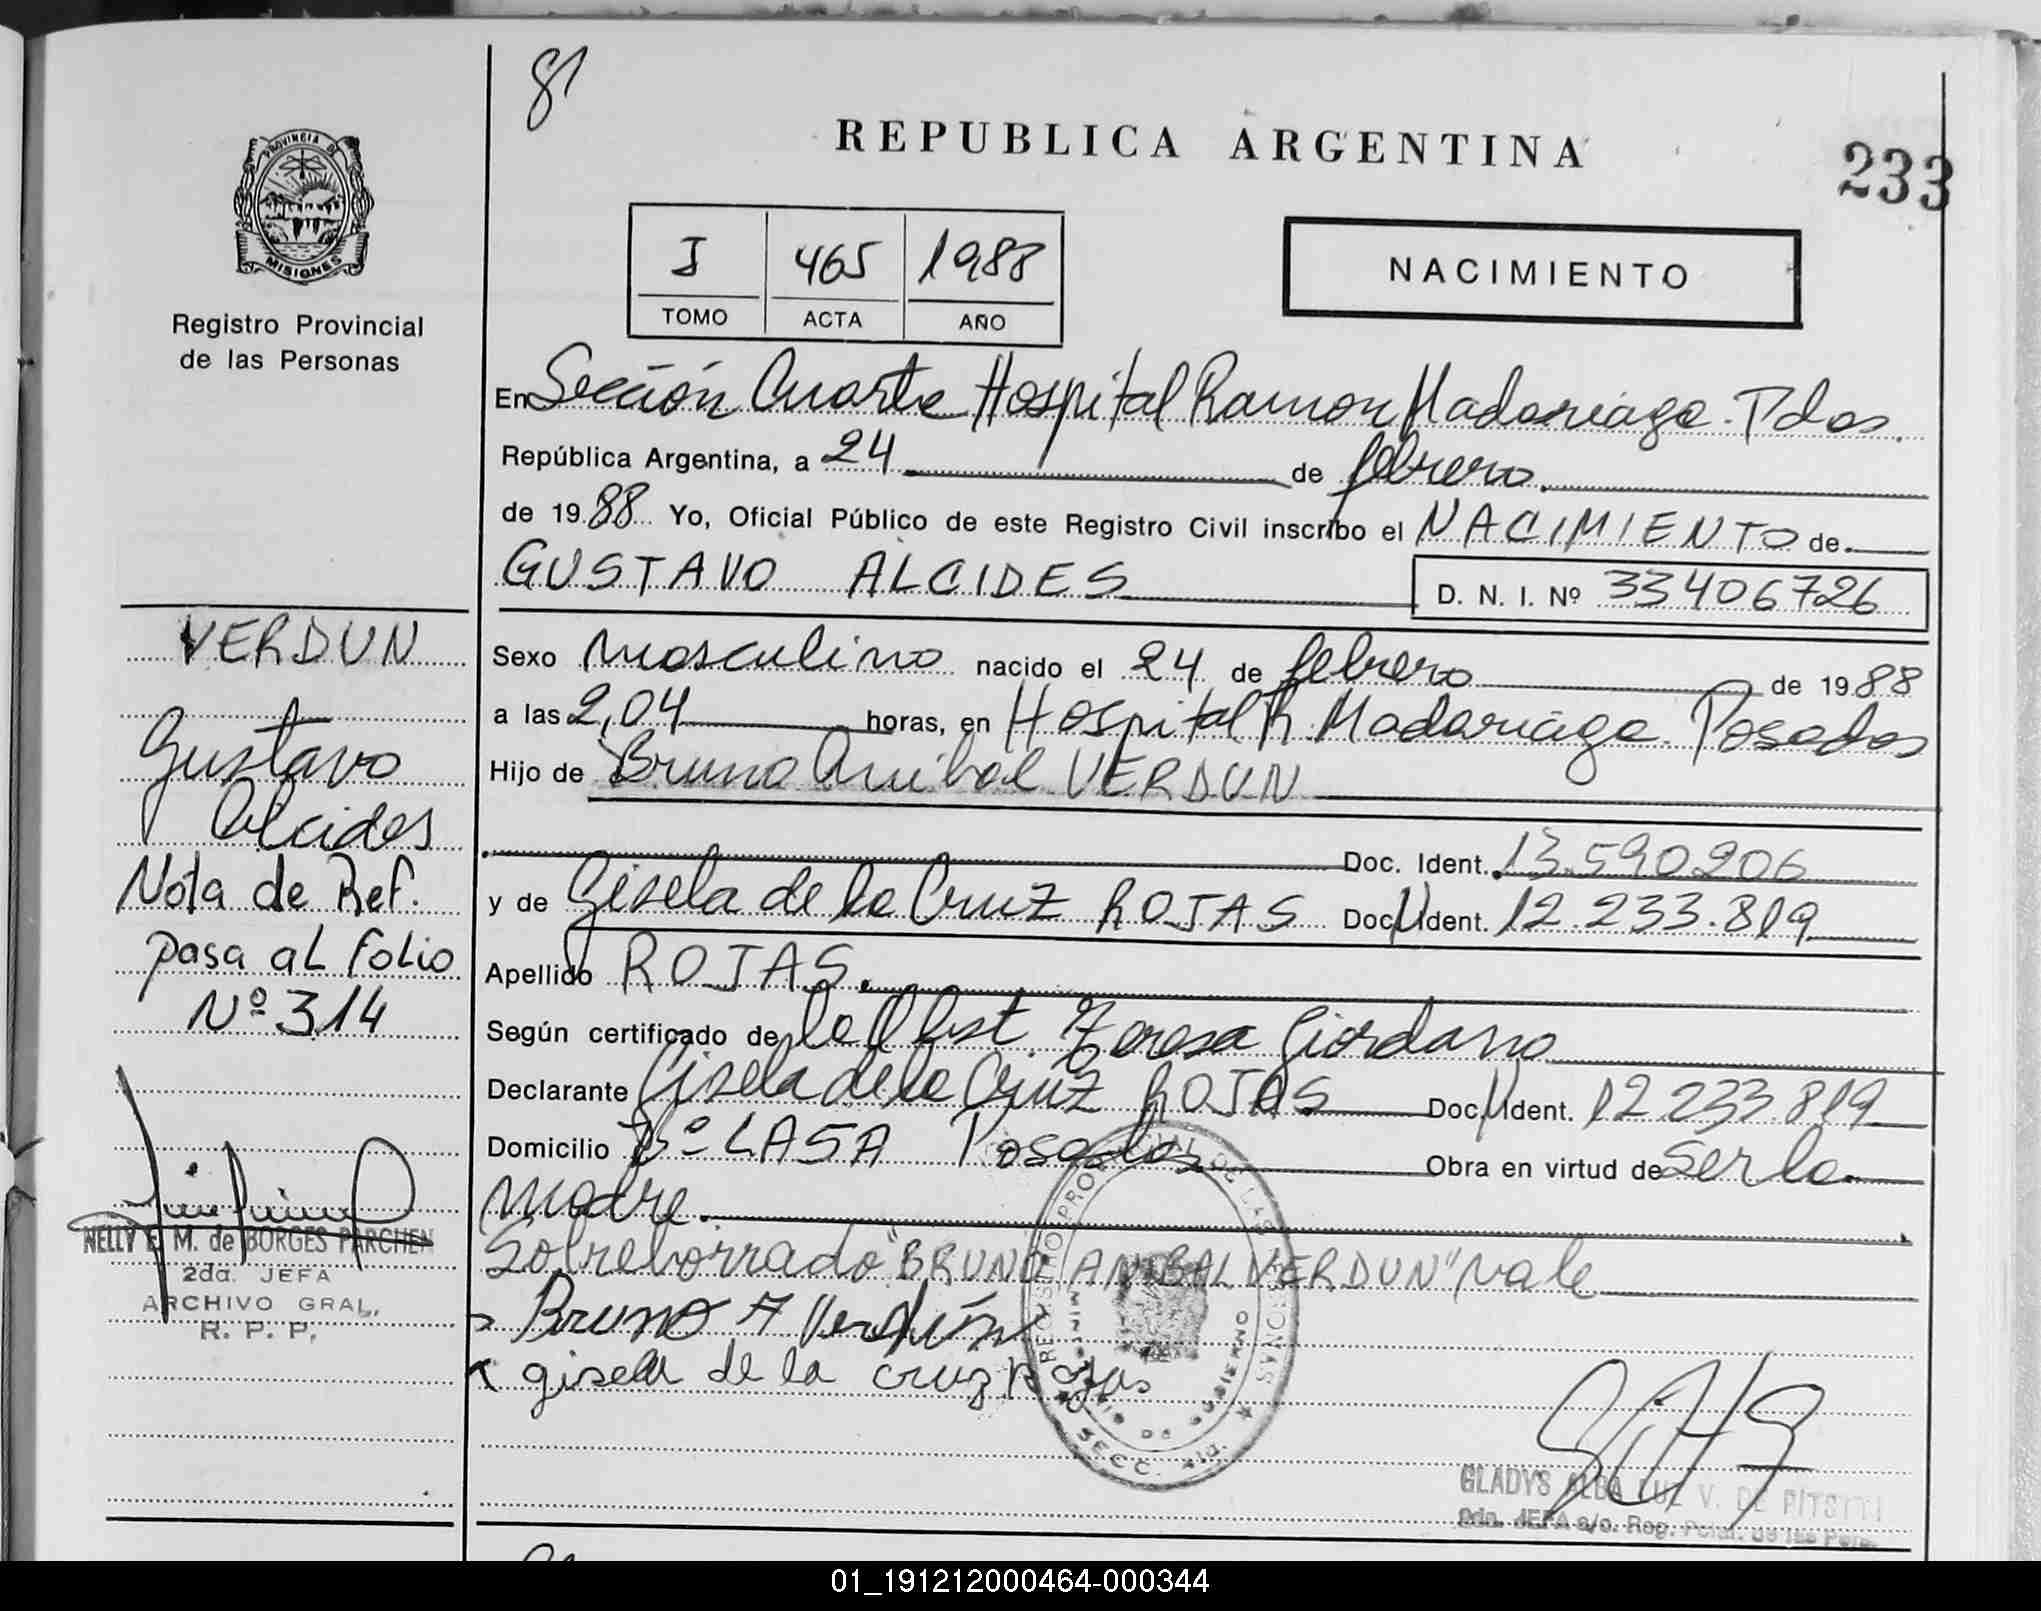 81
REPUBLICA ARGENTINA
233
PROVINCIA DE
MISIONES
Registro Provincial
de las Personas
I 465 1988
TOMO ACTA AÑO
NACIMIENTO
En Sección Cuarta Hospital Ramon Madariaga. Pdas.
República Argentina, a 24 de febrero.
de 1988 Yo, Oficial Público de este Registro Civil inscribo el NACIMIENTO de
GUSTAVO ALCIDES
D. N. I. Nº 33406726
Sexo masculino nacido el 24 de febrero de 1988
a las 2,04 horas, en Hospital R. Madariaga. Posadas
Hijo de Bruno Anibal VERDUN
Doc. Ident. 13.590206
y de Gisela de la Cruz ROJAS Doc. Ident. 12.233.819
Apellido ROJAS.
Según certificado de la Obst. Teresa Giordano
Declarante Gisela de la Cruz ROJAS Doc. Ident. 12.233.819
Domicilio Bº LASA Posadas Obra en virtud de ser la
madre.
Sobreborrado "BRUNO ANIBAL VERDUN" vale
Bruno A Verdún
x gisela de la cruz Rojas
VERDUN
Gustavo
Alcides
Nota de Ref.
pasa al folio
Nº 314
NELLY E. M. de BORGES PARCHEN
2da. JEFA
ARCHIVO GRAL.
R. P. P.
REGISTRO PROVINCIAL DE LAS PERSONAS
MINISTERIO DE GOBIERNO
SECC. 4ta.
GLADYS ALBA LUZ V. DE
2da. JEFA a/c. Reg. Pcial. de las Pers.
01_191212000464-000344